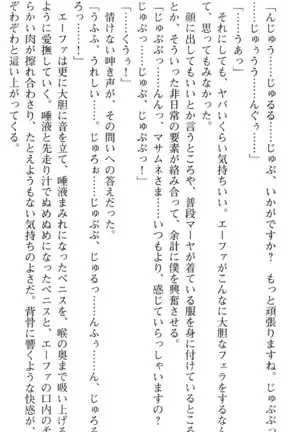 「んじゅう……じゅるる……じゅぷ、いかがですか？　もっと頑張りますね。じゅぷ
……じゅぅうう……んぐぅ……」
「……うあっ」
それにしても、ヤバいくらい気持ちいい。エーファがこんなに大胆なフェラをするなん
て、思ってもみなかった。
顔に出してもいいとか言うところや、普段マーヤが着ている服を身に付けているところ
とか、そういう非日常の要素が絡み合って、余計に僕を興奮させる。
「じゅぷぷ……んんっ、マサムネさま……いつもより、感じていらっしゃいますの？
じゅぷっ……じゅぷ、じゅぷぷっ！」
「……くうぅ！」
情けない呻き声が、その問いへの答えだった。
「うふふ、うれしい……。じゅろぉ……じゅぷぷ、じゅるっ……んふぅ……ん、じゅる
ろっ……！」
エーファは更に大胆に音を立て、唾液まみれになったペニスを、喉の奥まで吸い上げる
ように愛撫していく。唾液と先走り汁でぬめぬめになったペニスと、エーファの口内の柔
らかい肉が擦れ合わさり、たとえようもない気持ちのよさだ。背骨に響くような快感が、
ぞわぞわと這い上がってくる。